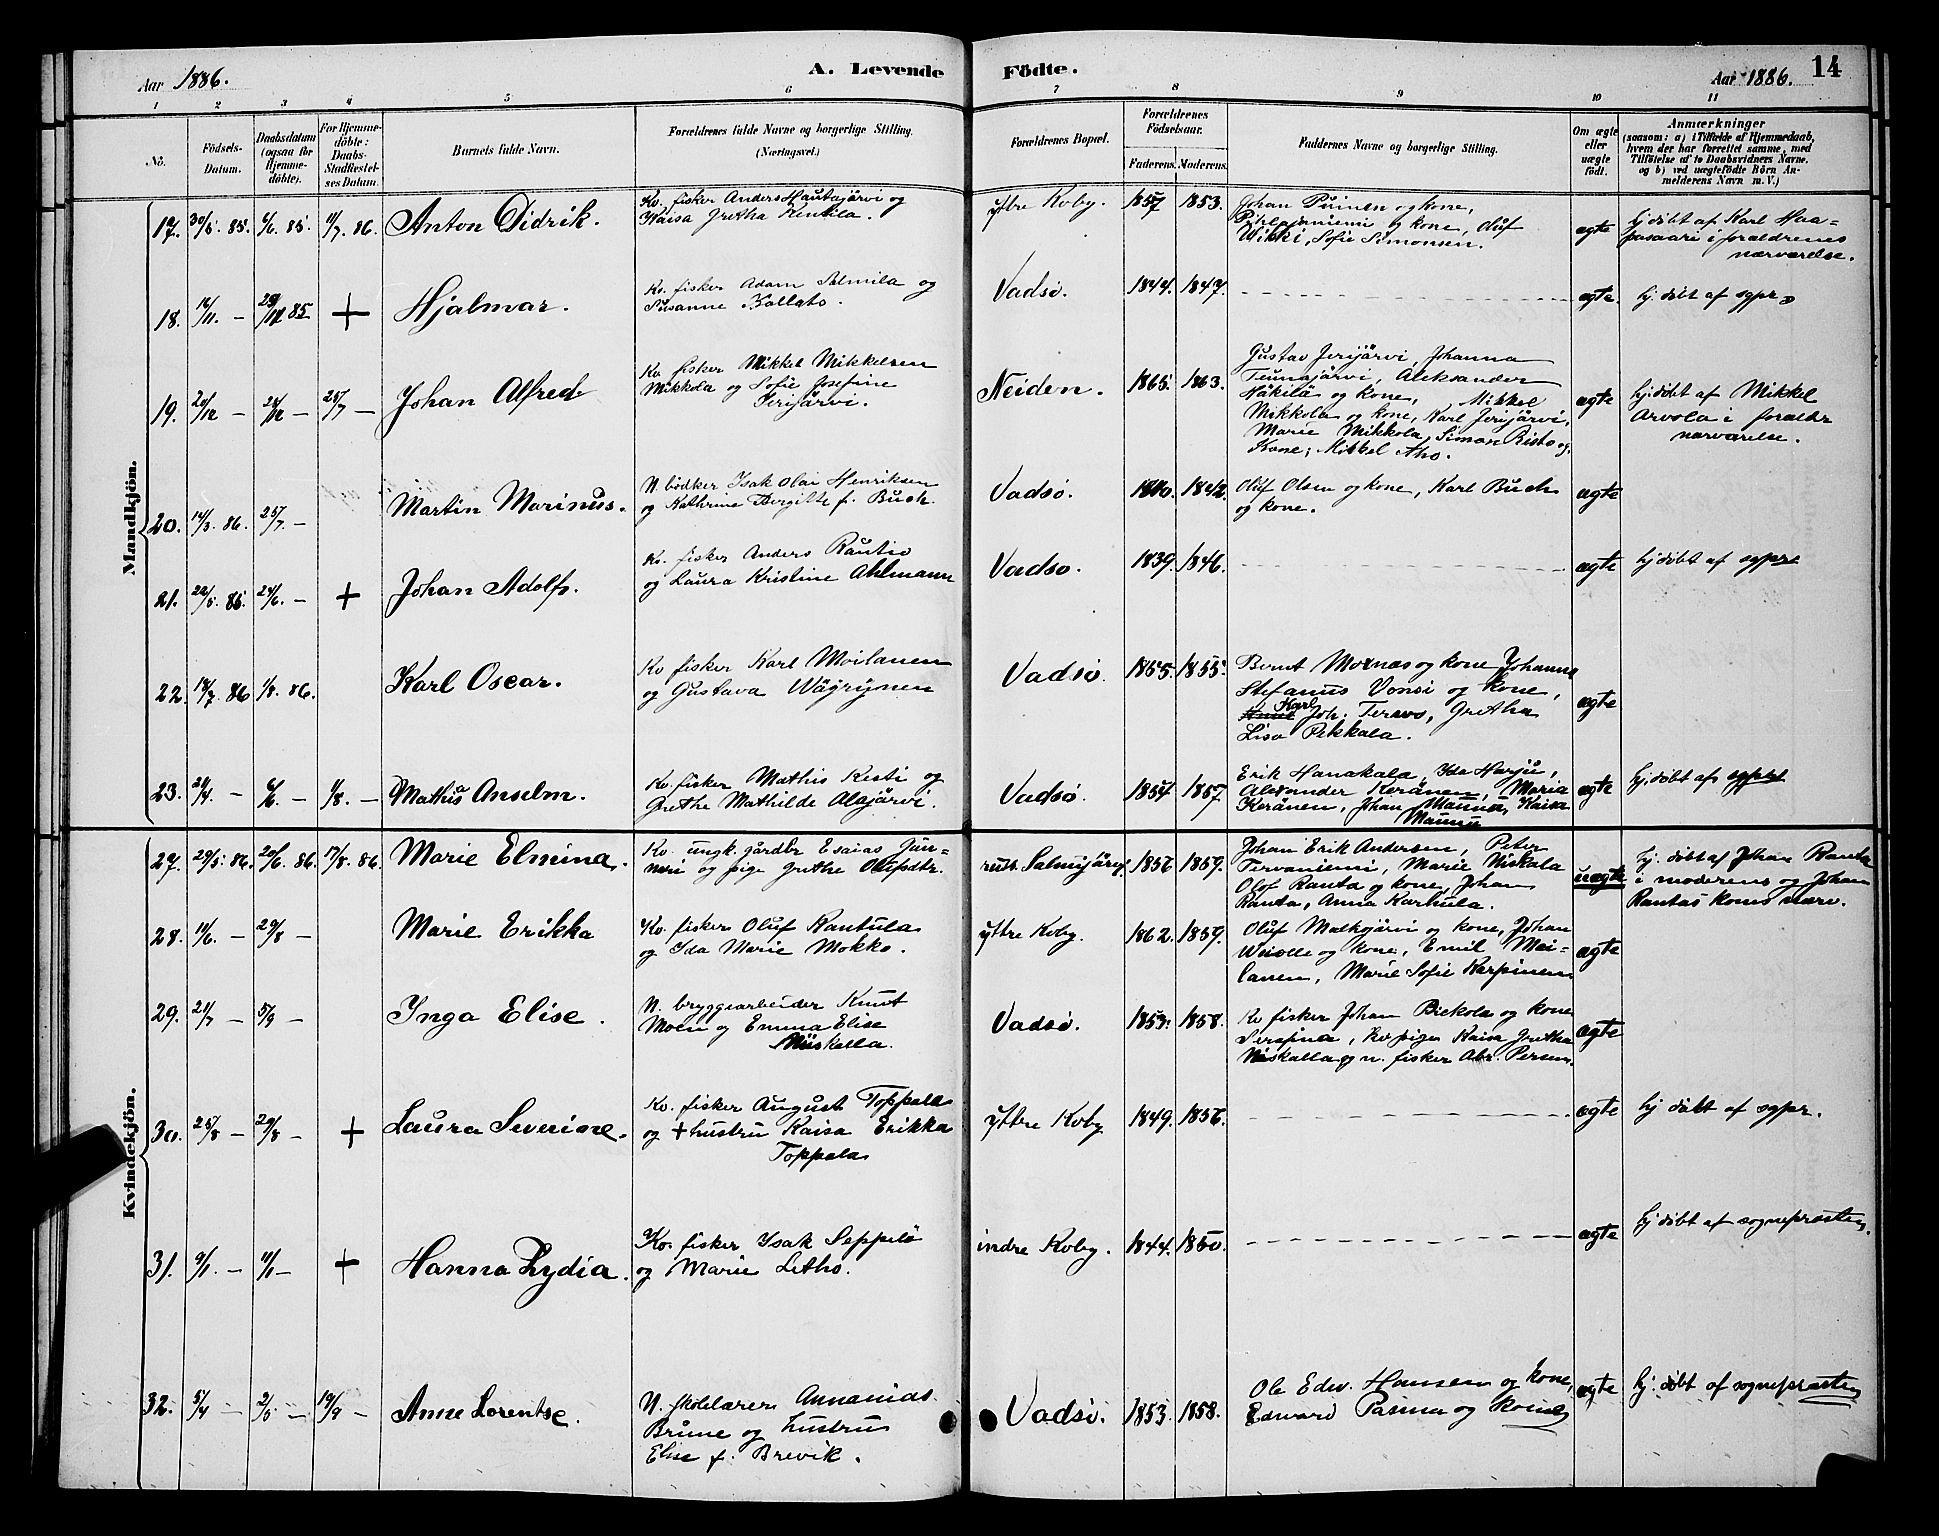 Aar 1886.
A. Levende
Födte.
Aar 1886.
14
1 2 3 4 5 6 7 8 9 10 11
No.
Födsels-
Datum.
Daabsdatum
(ogsaa for
Hjemme-
döbte).
For Hjemme-
döbte:
Daabs-
Stadfæstel-
ses Datum.
Barnets fulde Navn.
Forældrenes fulde Navne og borgerlige Stilling.
(Næringsvei.)
Forældrenes Bopæl.
Forældrenes
Födselsaar.
Faderens. Moderens.
Faddernes Navne og borgerlige Stilling.
Om ægte
eller
uægte
födt.
Anmærkninger
(saasom: a) i Tilfælde af Hjemmedaab,
hvem der har forrettet samme, med
Tilföielse af to Daabsvidners Navne,
og b) ved uægtefödte Börn An-
melderens Navn m. V.)
Mandkjön.
17. 30/5. 85. 6/6. 85. 11/7. 86. Anton Didrik.
Kv. fisker Anders Hautajärvi og
Kaisa Gretha Kentila.
Ytre Koby. 1857 1853.
Johan Puinen og kone,
og kone, Oluf
Wikki, Sofie Simonsen.
ægte
hj. döbt af Karl Haa-
pasaari i forældrenes
nærværelse.
18. 16/11. — 85 + Hjalmar.
Kv. fisker Adam Salmila og
Susanne Kallato.
Vadsö. 1844. 1847.
ægte
hj. döbt af sgpr.
19. 20/12 — 25/7 — Johan Alfred
Kv. fisker Mikkel Mikkelsen
Mikkola og Sofie Josefine
Jerijärvi.
Neiden. 1865. 1863.
Gustav Jerijärvi, Johanna
Teunajärvi, Aleksander
Näkilä og kone, Mikkel
Mikkola og kone, Karl Jerijärvi,
Marie Mikkola, Simon Risto og
Kone; Mikkel Aho.
ægte
hj. döbt af Mikkel
Arvola i forældr
nærværelse.
20. 14/3. 86. 25/7. — Martin Marinus.
N. bödker Isak Olai Henriksen
og Kathrine Bergitte f. Buch.
Vadsö. 1840. 1842.
Oluf Olsen og kone, Karl Buch
og kone.
ægte
21. 22/5. 86. 24/6. — + Johan Adolf.
Kv. fisker Anders Rautio
og Laura Kristine Ahlmann
Vadsö. 1839. 1846.
ægte
hj. döbt af sgpr
22. 18/7. 86 1/8. 86. Karl Oscar.
Kv fisker Karl Moilanen
og Gustava Wägrynen
Vadsö. 1855. 1855.
Bernt Mornæs og kone Johanna
Stefanus Vonsi og kone,
Karl
Joh. Tervo, Gretha
Lisa Pekkala.
ægte
23. 21/4. — 6/6. — 1/8. — Mathis Anselm.
Kv. fisker Mathis Kesti og
Grethe Mathilde Alajärvi.
Vadsö. 1857. 1857
Erik Hanakala, Ida Harju,
Alexander Keränen, Maria
Keränen, Johan Maunu, Kaisa
Maunu
ægte
hj. döbt af sgpr
Kvindekjön.
27. 29/5. 86. 20/6. 86. 17/8. 86 Marie Elmina.
Kv. ungk. gårdbr Esaias Jun-
meri og pige Grethe Olufsdtr.
russ. Salmijärvi. 1856 1859.
Johan Erik Andersen, Peter
Tervaniemi, Marie Niskala
Olof Ranta og kone, Johan
Ranta, Anna Karhula.
uægte
hj. döbt af Johan Ranta
i moderens og Johan
Rantas kones nærv.
28. 11/6. — 29/8 — Marie Erikka
Kv. fisker Oluf Rantula
og Ida Marie Mokko.
ytre Koby. 1862. 1859.
Oluf Malkojärvi og kone, Johan
og kone, Emil Mei-
lanen, Marie Sofie Karpinen
ægte
29. 21/7 — 5/9 — Inga Elise.
N. bryggearbeider Knut
Moen og Emma Elise
Niiskalla.
Vadsö. 1853. 1858.
Kv fisker Johan Piekola og kone
Serafina, Kv pigen Kaisa Gretha
Niskalla og n. fisker Abr. Persen.
ægte
30. 25/8 — 29/8 — + Laura Severine.
Kv. fisker August Toppala
og + hustru Kaisa Erikka
Toppala
ytre Koby 1849. 1856.
ægte
hj döbt af sgpr.
31. 9/1. — 11/1 — + Hanna Lydia.
Kv. fisker Isak Seppelö
og Marie Letho.
indre Koby. 1844. 1850.
ægte
hj döbt af sognepræsten.
32. 5/4 — 2/5 — 19/9 — Anne Lorentse.
N. skolelærer Annanias
Brune og hustru
Elise f. Brevik.
Vadsö. 1853. 1858.
Ole Edv. Hansen og kone,
Edward Pasma og kone
ægte
hj. döbt af sognepræsten